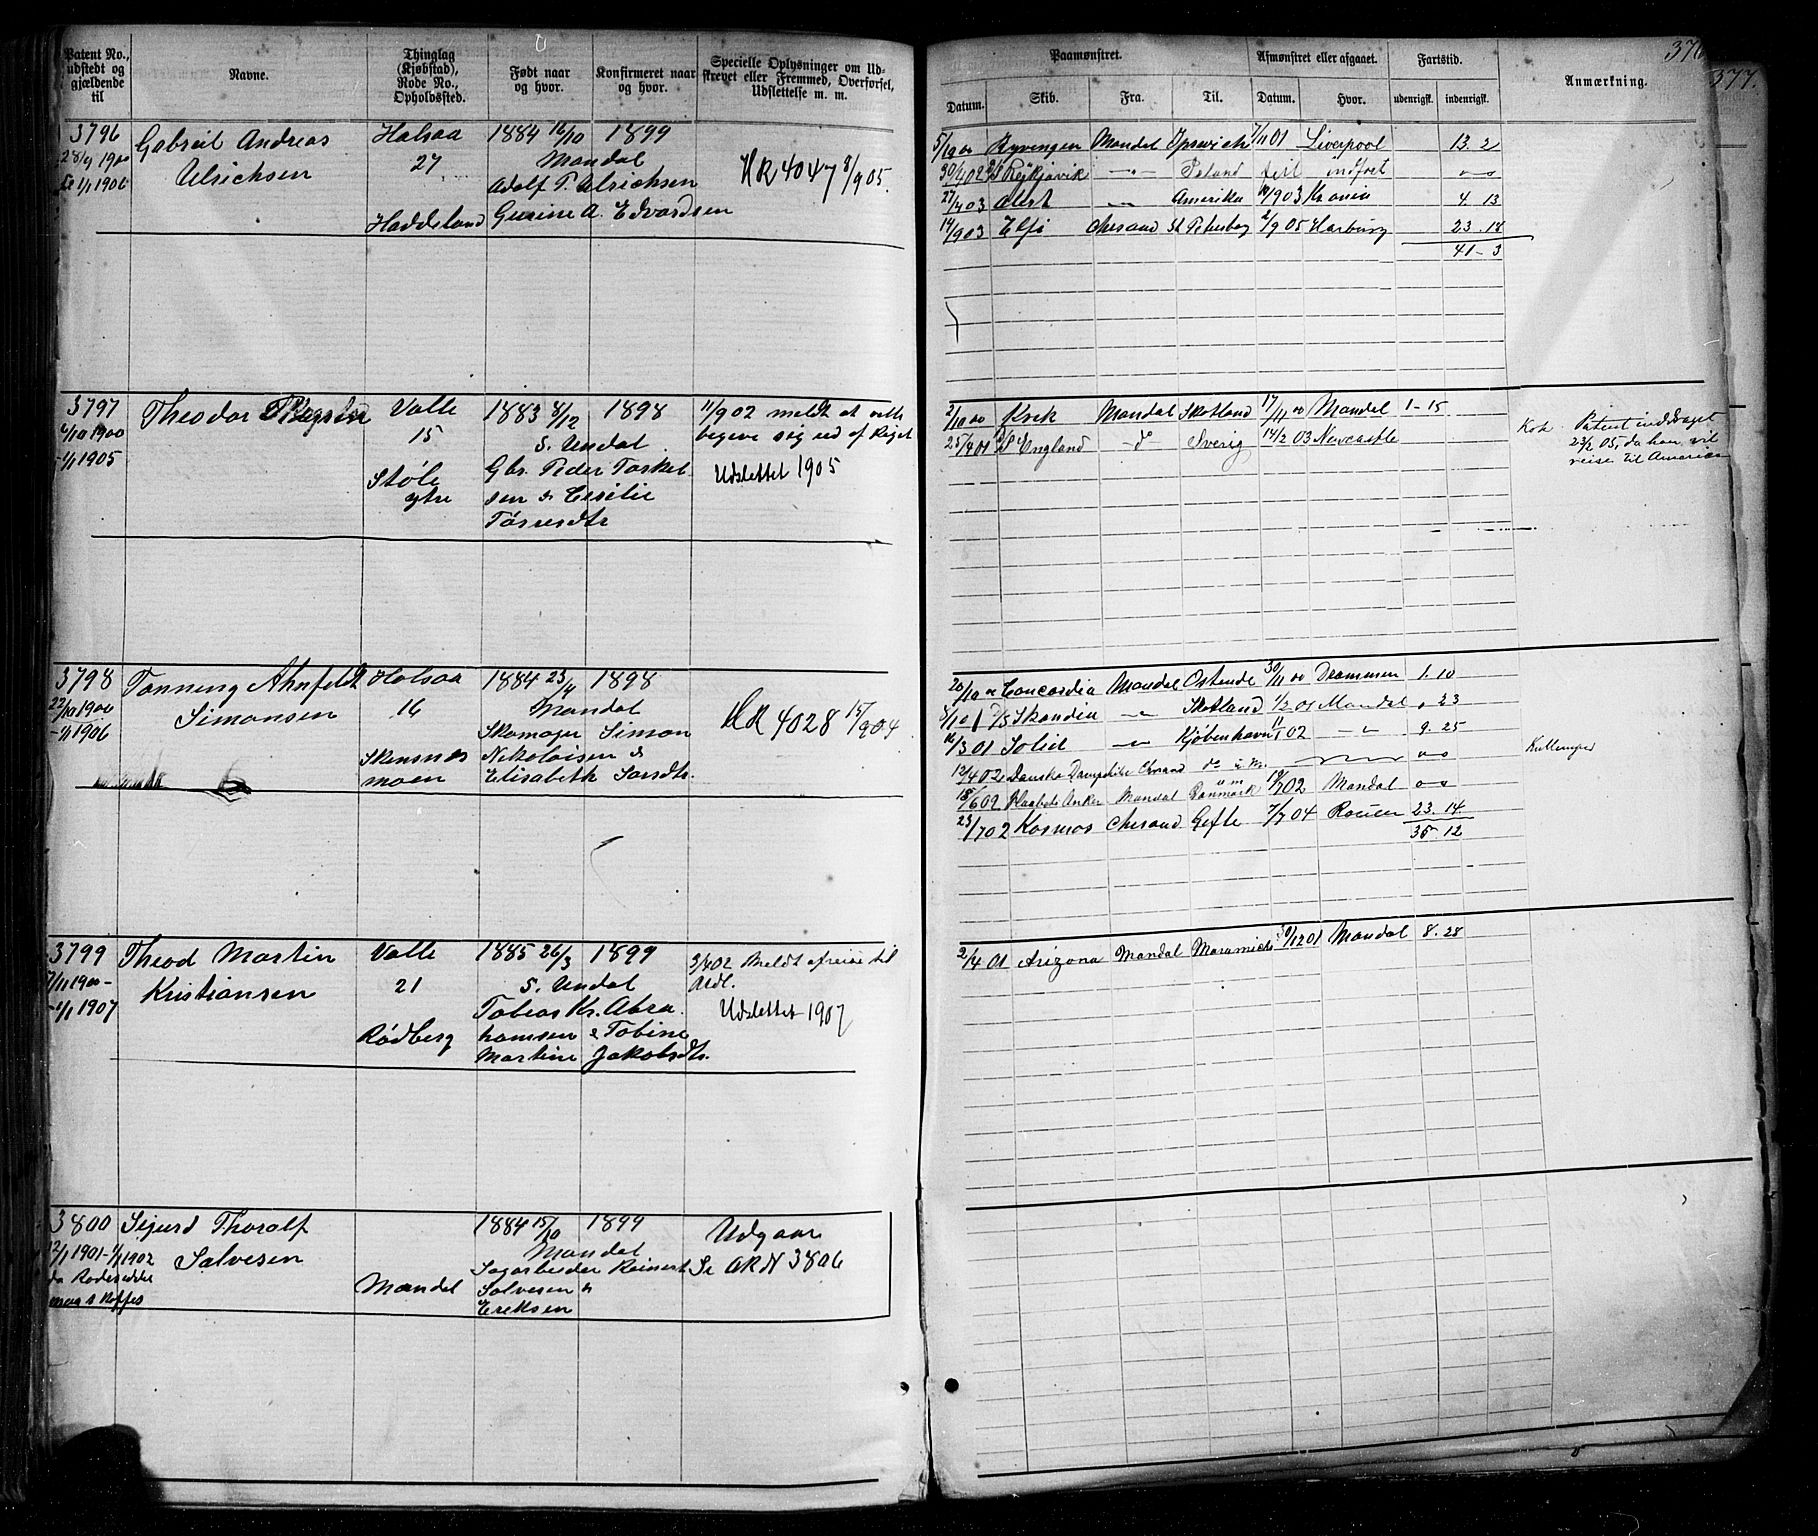 Patent No., udstedt og gjældende til
Navne.
Thinglag (Kjøbstad), Rode No., Opholdssted.
Født naar og hvor.
Konfirmeret naar og hvor.
Specielle Oplysninger om Udskrevet eller Fremmed, Overførsel, Udslettelse m. m.
Paamønstret.
Afmønstret eller afgaaet.
Fartstid.
Anmærkning.
377.
Datum.
Skib.
Fra.
Til.
Datum.
Hvor.
udenrigsk.
indenrigsk.
3796
28/9 1900
1/1 1906
Gabriel Andreas
Ulrichsen
Halsaa
27
Haddeland
1884 16/10 1899
Mandal
Adolf T. Ulrichsen
Gurine A. Edvardsen
HR 4047 8/9 05.
5/10 00 Ryvingen Mandal Ipswich 7/1 01 Liverpool 13. 2
30/4 02 D/S Reykjavik Island feil indført
27/4 03 Alert Amerika 03 4. 13
14/9 03 St Petersborg 2/9 05 Harburg 23. 18
41 - 3
3797
4/10 1900
1/1 1905
Theodor
Valle
15
Støle
ytre
1883 8/12 1898
S. Undal
Gbr. Peder Torkel-
sen & Cecilie
Tørresdtr
11/9 02 meldt at ville
begive sig ud af Riget
Udslettet 1905
2/10 00 Kvik Mandal Skotland 17/11 00 Mandal 1-15
25/4 01 D/S England do Sverig 14/2 03 Newcastle
Kok
Patent inddraget
23/2 05, da han vil
reise til Amerika
3798
22/10 1900
-1/1 1906
Tønning Ahnfeldt
Simonsen
Halsaa
16
Skinsnes
moen
1884 23/4 1898
Mandal
Skomager Simon
Nikolaisen &
Elisabeth Larsdtr.
HR 4028 15/9 04
20/10 00 Concordia Mandal Ostende 30/11 00 Drammen 1. 10
D/S Skandia Skotland 1/2 01 Mandal . 23
16/3 01 Solid Kjøbenhavn 02 9. 25
12/4 02 Danske
18/6 02 Haabets Anker Mandal Danmark 02 Mandal
23/7 02 Kosmos Chrsand Gefle 7/7 04 Rouen 23. 14.
35. 12
3799
1900-
1/1 1907
Theod Martin
Kristiansen
Valle
21
Rødberg
1885 26/3 1899
S. Undal
Tobias Kr. Abra
hamsen & Tobine
Martine Jakobsdtr.
3/4 02 Meldt afreise til
Udl.
Udslettet 1907
2/4 01 Arizona Mandal 12 01 Mandal 8. 28
3800
12/1 1901 - 1/1 1902
Sigurd Thoralf
Salvesen
Mandal
1884 15/10 1899
Mandal
Sagarbeider Reinert
Salvesen &
Eriksen
Udgaar
Se ARN 3806